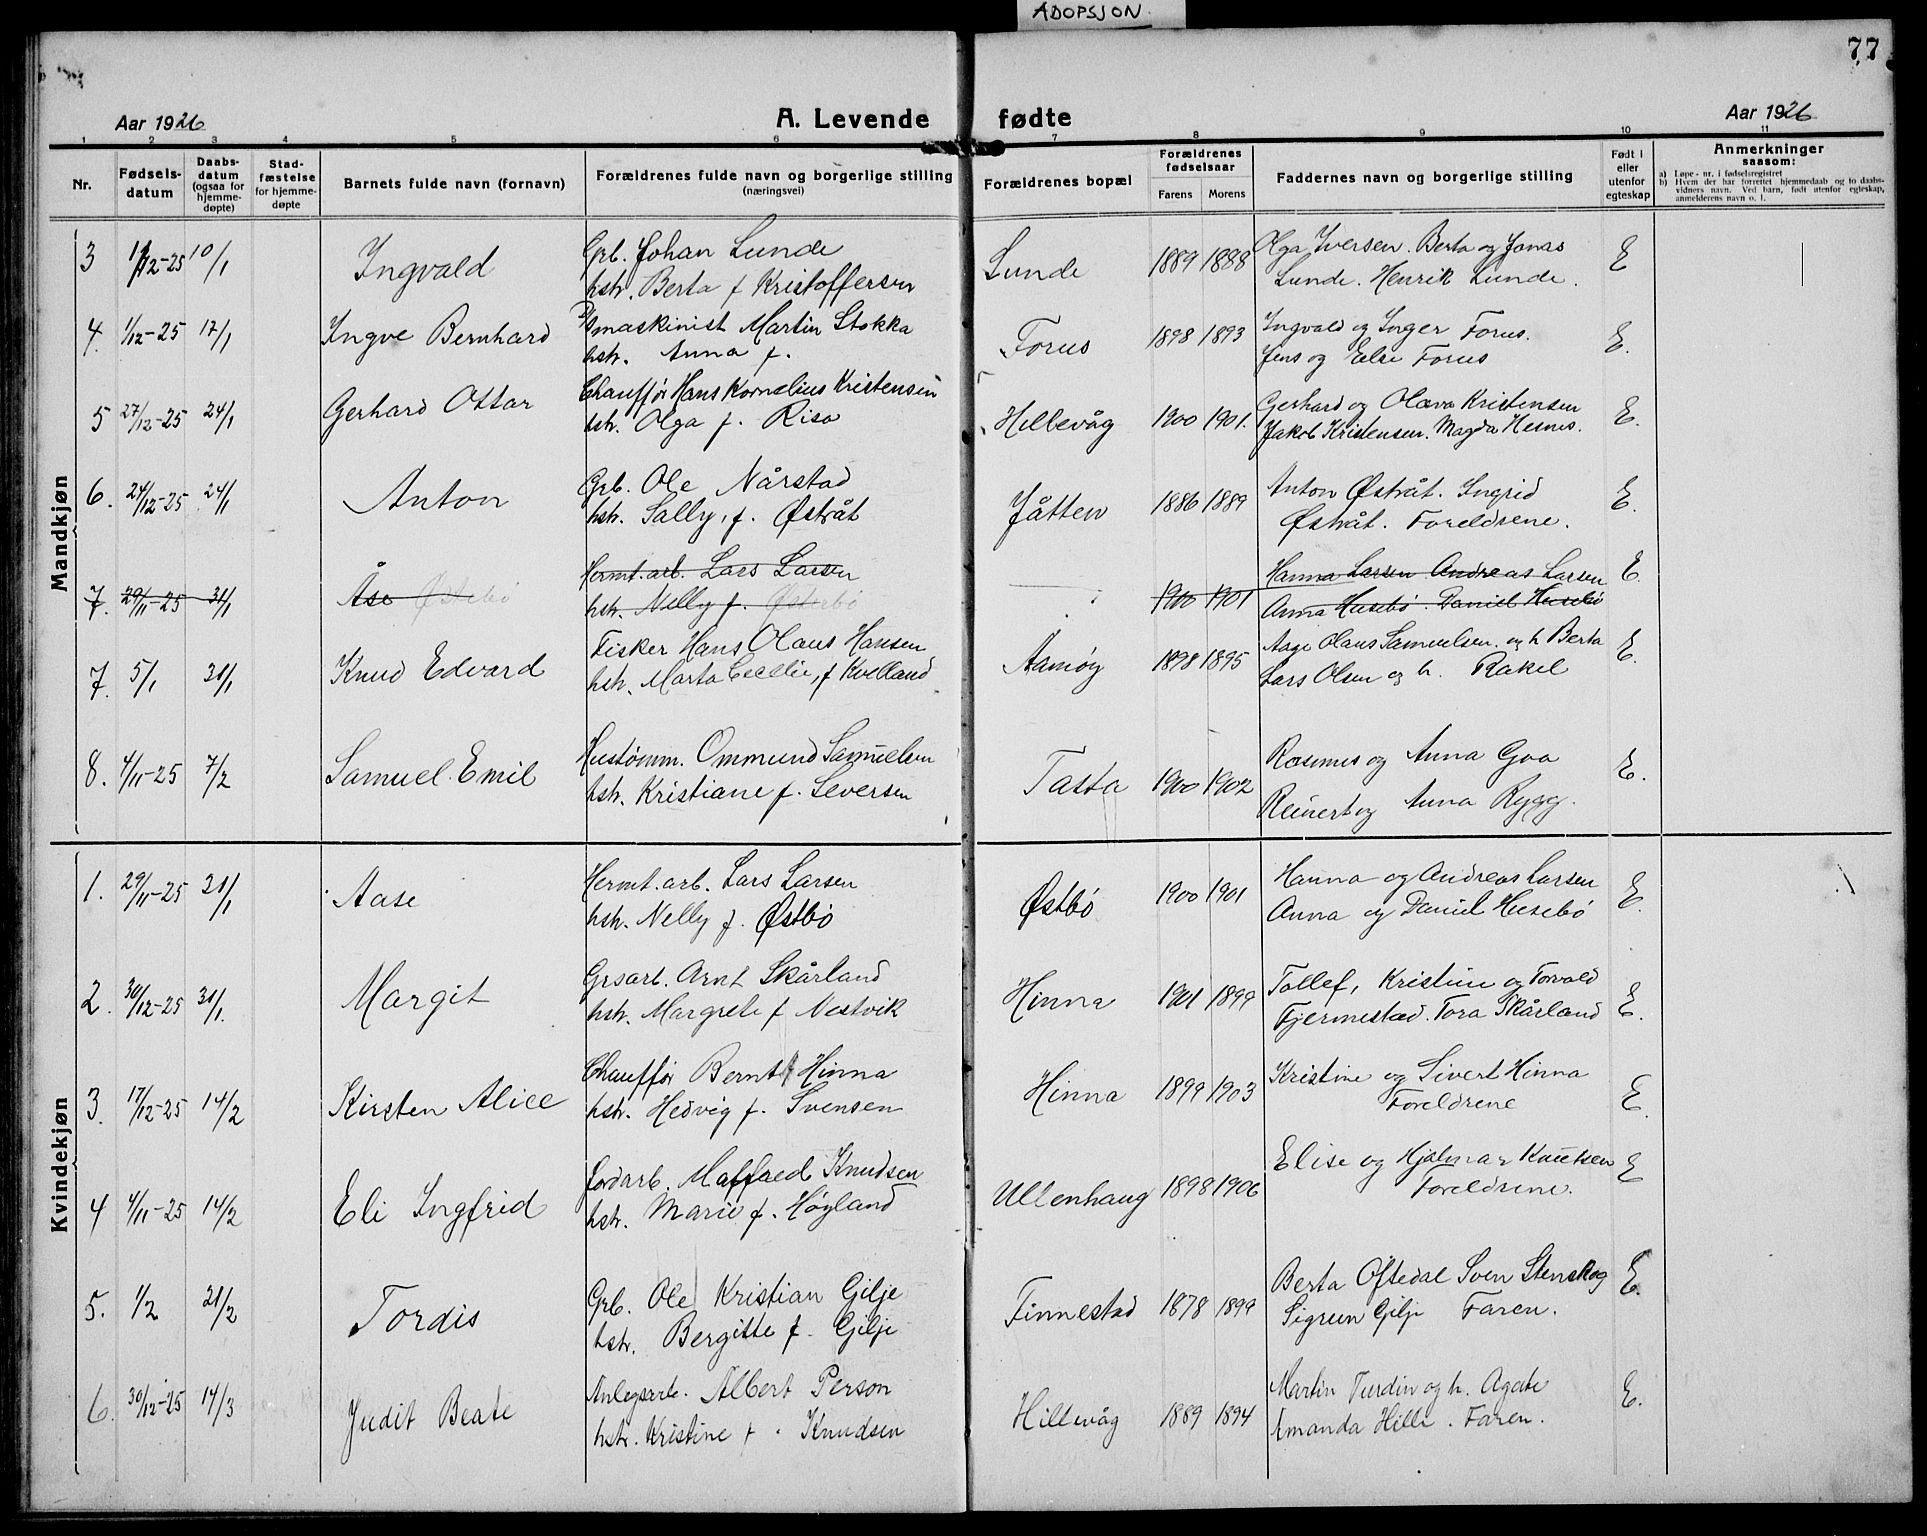 ADOPSJON
77
Aar 1926
A. Levende fødte
Aar 1926
1 2 3 4 5 6 7 8 9 10 11
Nr.
Fødsels-
datum
Daabs-
datum
(ogsaa for
hjemme-
døpte)
Stad-
fæstelse
for hjemme-
døpte
Barnets fulde navn (fornavn)
Forældrenes fulde navn og borgerlige stilling
(næringsvei)
Forældrenes bopæl
Forældrenes
fødselsaar
Farens Morens
Faddernes navn og borgerlige stilling
Født i
eller
utenfor
egteskap
Anmerkninger
saasom:
a) Løpe-nr. i fødselsregistret
b) Hvem der har forrettet hjemmedaab og to daabs-
vidners navn. Ved barn, født utenfor egteskap,
anmelderens navn o. l.
Mandkjøn
3 12-25 10/1 Ingvald Grb. Johan Lunde Lunde 1889 1888 Olga Iversen. Berta og Jonas E
hstr. Berta f Kristoffersen Lunde. Henrik Lunde.
4. 1/12-25 17/1 Ingve Bernhard maskinist Martin Stokka Forus 1898 1893 Ingvald og Inger Forus. E.
hstr. Anna f. Jens og Else Forus
5 27/12-25 24/1 Gerhard Ottar Chauffør Hans Kornelius Kristensen Hillevåg 1900 1901. Gerhard og Olava Kristensen E.
hstr. Olga f. Risa Jakob Kristensen. Magda Hesnes.
6. 24/12-25 24/1 Anton Grb. Ole Nårstad Jåtten 1886 1889 Anton Østråt. Ingrid E.
hstr. Sally, f. Østråt Østråt. Foreldrene.
7. 29/11-25 31/1 Åse Østebø Hermt. arb. Lars Larsen 1900 1901 Hanna Larsen Andreas Larsen E.
hstr. Nelly f. Østebø Anna Husebø. Daniel Husebø
7. 5/1 31/1 Knud Edvard Fisker Hans Olaus Hansen Aamøy 1898 1895 Aage Olaus Samuelsen. og h. Berta E.
hstr. Marta Cecilie, f Kvelland Lars Olsen og h. Rakel
8. 4/11-25 7/2 Samuel Emil Hustømm. Ommund Samuelsen Tasta 1900 1902 Rasmus og Anna Goa E.
hstr. Kristiane f. Seversen Reinert og Anna Rygg.
Kvindekjøn
1. 29/11-25 31/1 Aase Hermt. arb. Lars Larsen Østbø 1900 1901 Hanna og Andreas Larsen E.
hstr. Nelly f. Østbø Anna og Daniel Husebø
2. 30/12-25 31/1. Margit Grsarb. Arnt Skårland Hinna 1901 1899 Tollef, Kristine og Torvald E.
hstr. Margrete f Nestvik Fjermestad. Tora Skårland
3. 17/12-25 14/2 Kirsten Alice Chauffør Bernt Hinna Hinna 1899 1903 Kristine og Sivert Hinna E.
hstr. Hedvig f. Svensen Foreldrene
4 4/11-25 14/2 Eli Ingfrid Jordarb. Knudsen Ullenhaug 1898 1906 Elise og Hjalmar Knutsen E
hstr. Marie f. Høyland Foreldrene.
5. 1/2 21/2 Tordis Grb. Ole Kristian Gilje Finnestad 1878 1899 Berta Oftedal Sven Stenskog E.
hstr. Bergitte f. Gilje Sigrun Gilje Faren.
6. 30/12-25 14/3 Judit Beate Anlegsarb. Albert Person Hillevåg 1889 1894 Martin Tundin og h. Agate E.
hstr. Kristine f. Knudsen Amanda Hille. Faren.